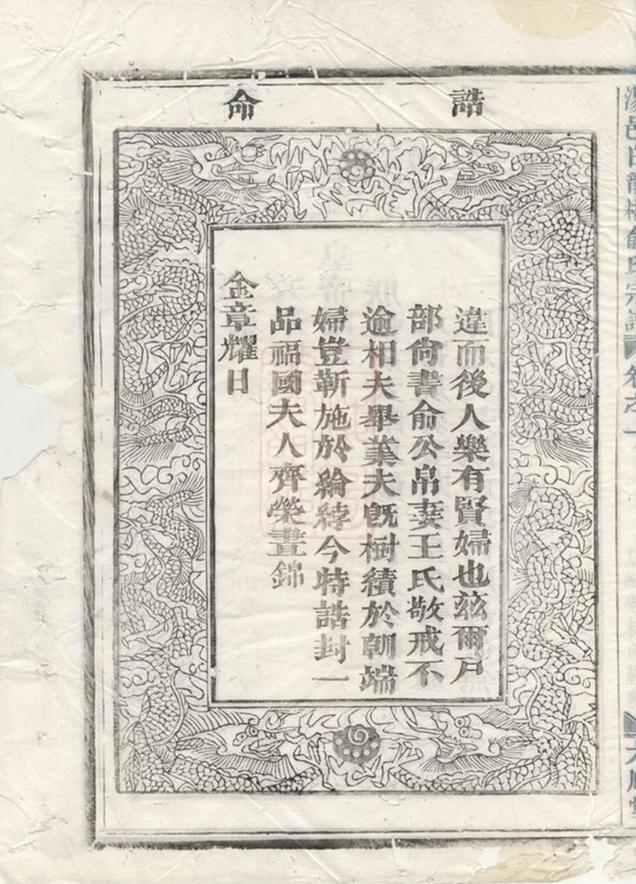 誥命
違而後人樂有賢婦也茲爾戶
部尚書俞公帛妻王氏敬戒不
逾相夫舉業夫旣樹績於朝端
婦豈靳施於綸綍今特誥封一
品福國夫人齊榮晝錦
金章耀日